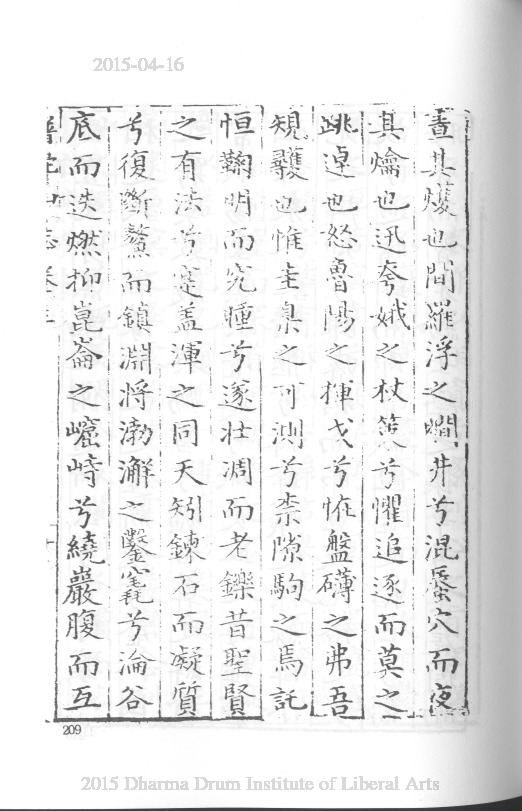 2015-04-16
晝其爕也閒羅浮之㵎井兮混蜃穴而夜
其爚也迅夸娥之杖策兮懼追逐而莫之
跳逴也怒魯陽之揮戈兮恠盤礴之弗吾
規彠也惟圭臬之可測兮柰隙駒之焉託
恒鞠明而究曈兮遂壯凋而老鑠昔聖賢
之有法兮寔蓋渾之同天矧鍊石而凝質
兮復斷鰲而鎮淵將渤澥之鑿竁兮淪谷
底而迭燃抑崑崙之巘崎兮繞巖腹而互
209
2015 Dharma Drum Institute of Liberal Arts